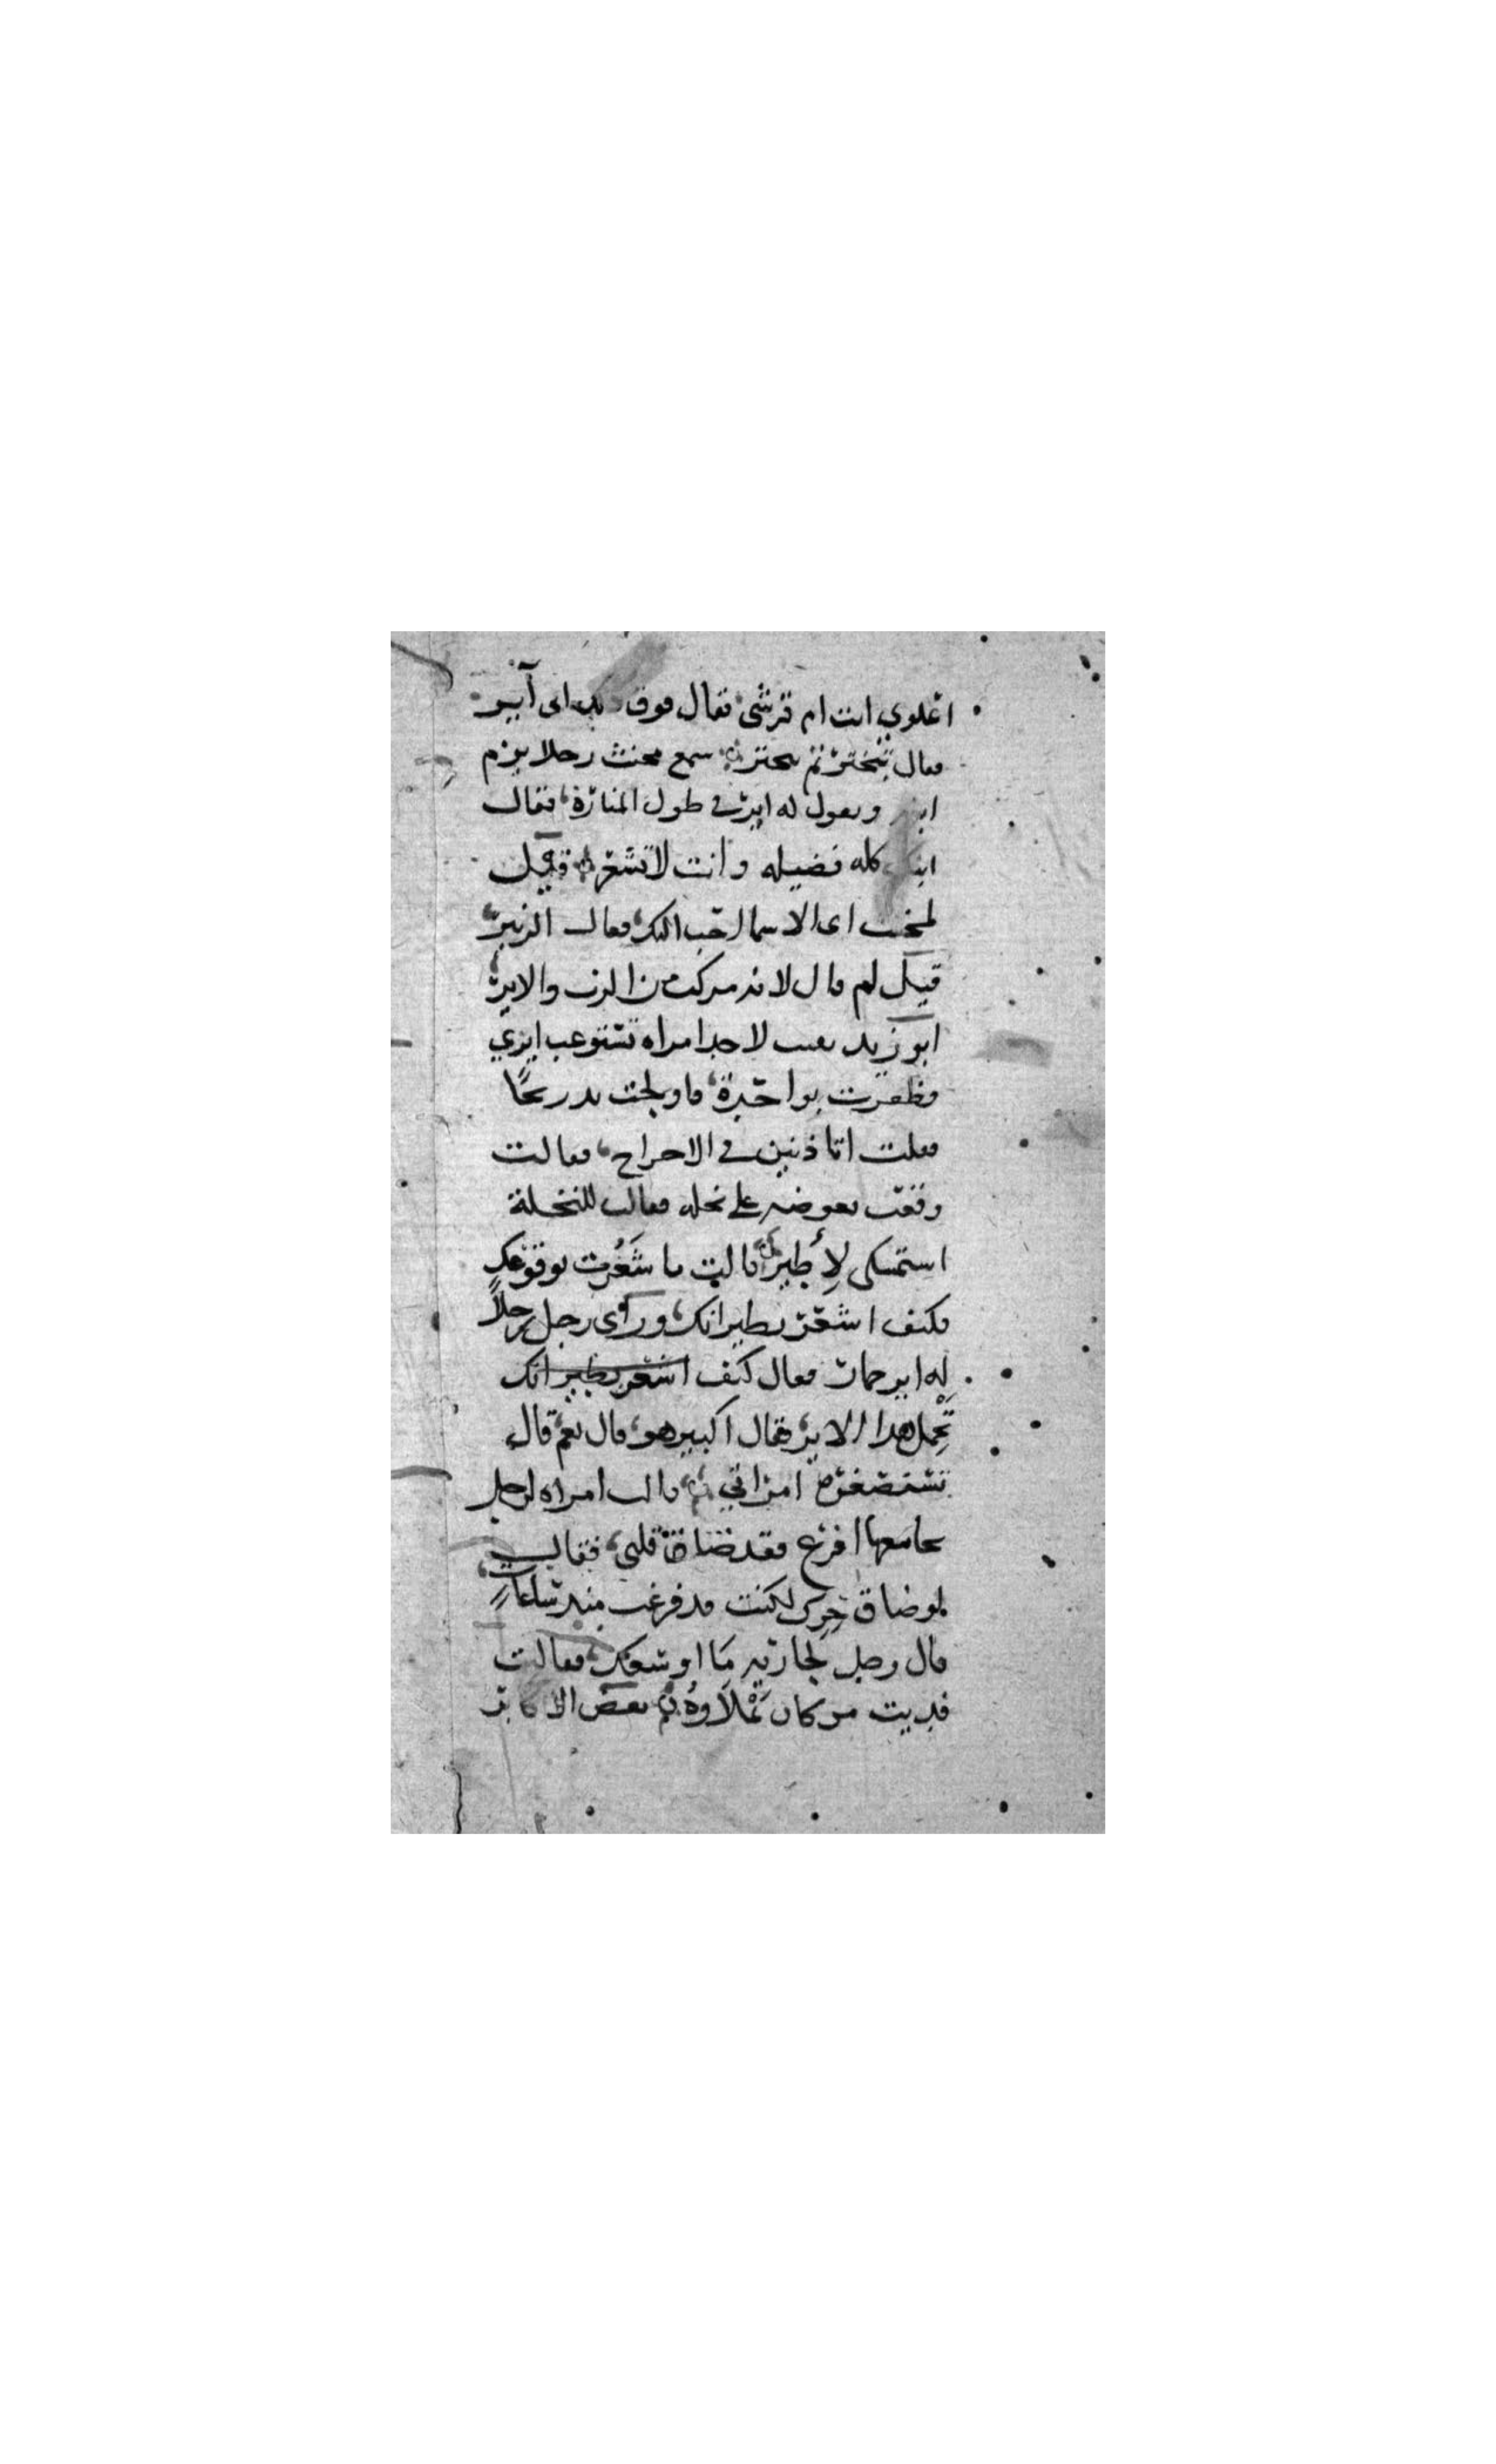 اعلوي انت ام قرشي فقال فوق اى آيير
فقال تبختر ثم تبختر سمع مخنث رجلا يهزم
ابنه ويقول له اير في طول المنارة فقال
كله فضيله وانت لا تشعر قيل
لمخنث اى الاسما احب اليك فقال الزبير
قيل لم قال لانه مركب من الزب والاير
ابو زيد تعبت لا اجد امراه تستوعب ايري
فظفرت بواحدة فاولجت تدريجًا
فقلت اتاذنين في الاخراج فقالت
وقعت بعوضه على نخله فقالت للنخلة
استمسكى لأطير قالت ما شَعُرت بوقوعك
فكيف اشعر بطيرانك وراى رجل رجلاً
له اير حمار فقال كيف اشعر بطيرانك
تحمل هدا الاير فقال اكبير هو قال نعم قال
تستصغره امراتي قالت امراه لرجل
يجامعها افرغ فقد ضاق قلبي فقالت
لو ضاق حرك لكنت قد فرغت منذ ساعات
قال رجل لجاريه ما اوسعك فقالت
فديت من كان يملاوه بعض الاكابر